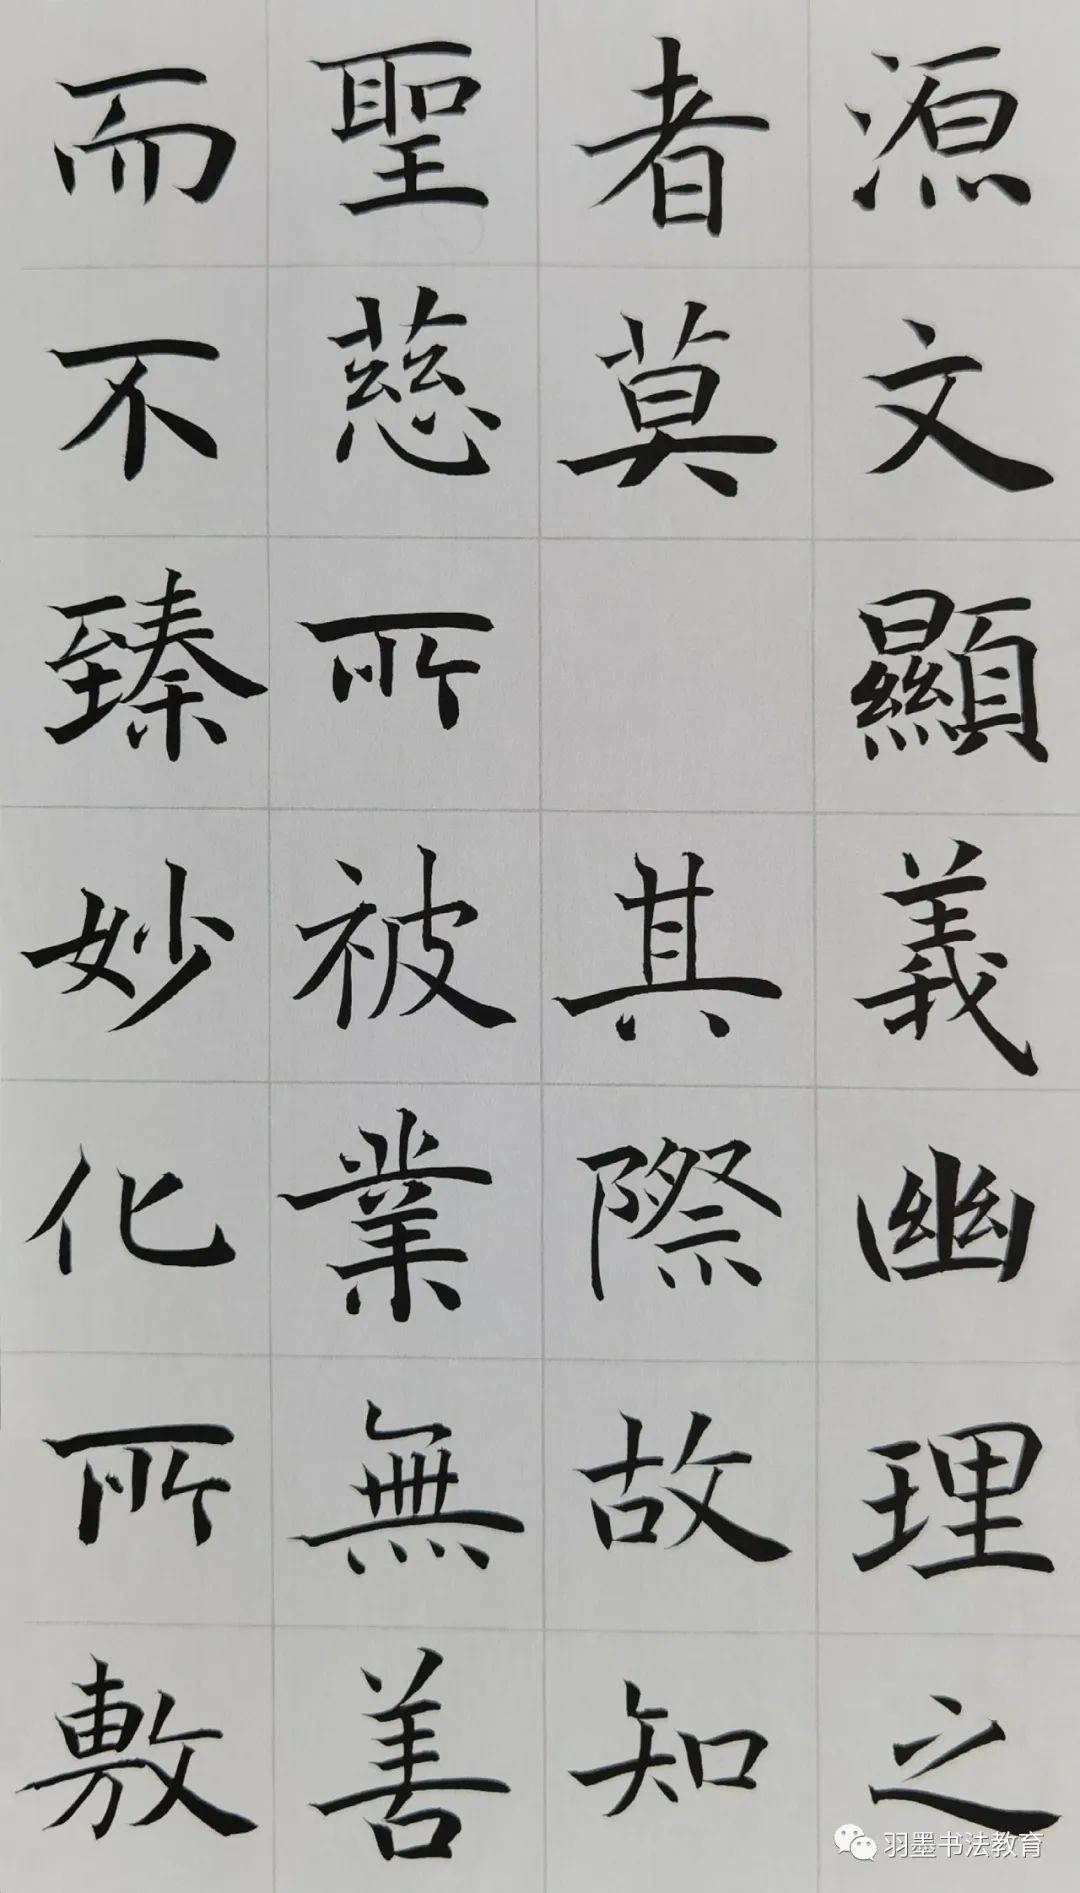 源文顯義幽理之
者莫其際故知
聖慈所被業無善
而不臻妙化所敷
羽墨书法教育